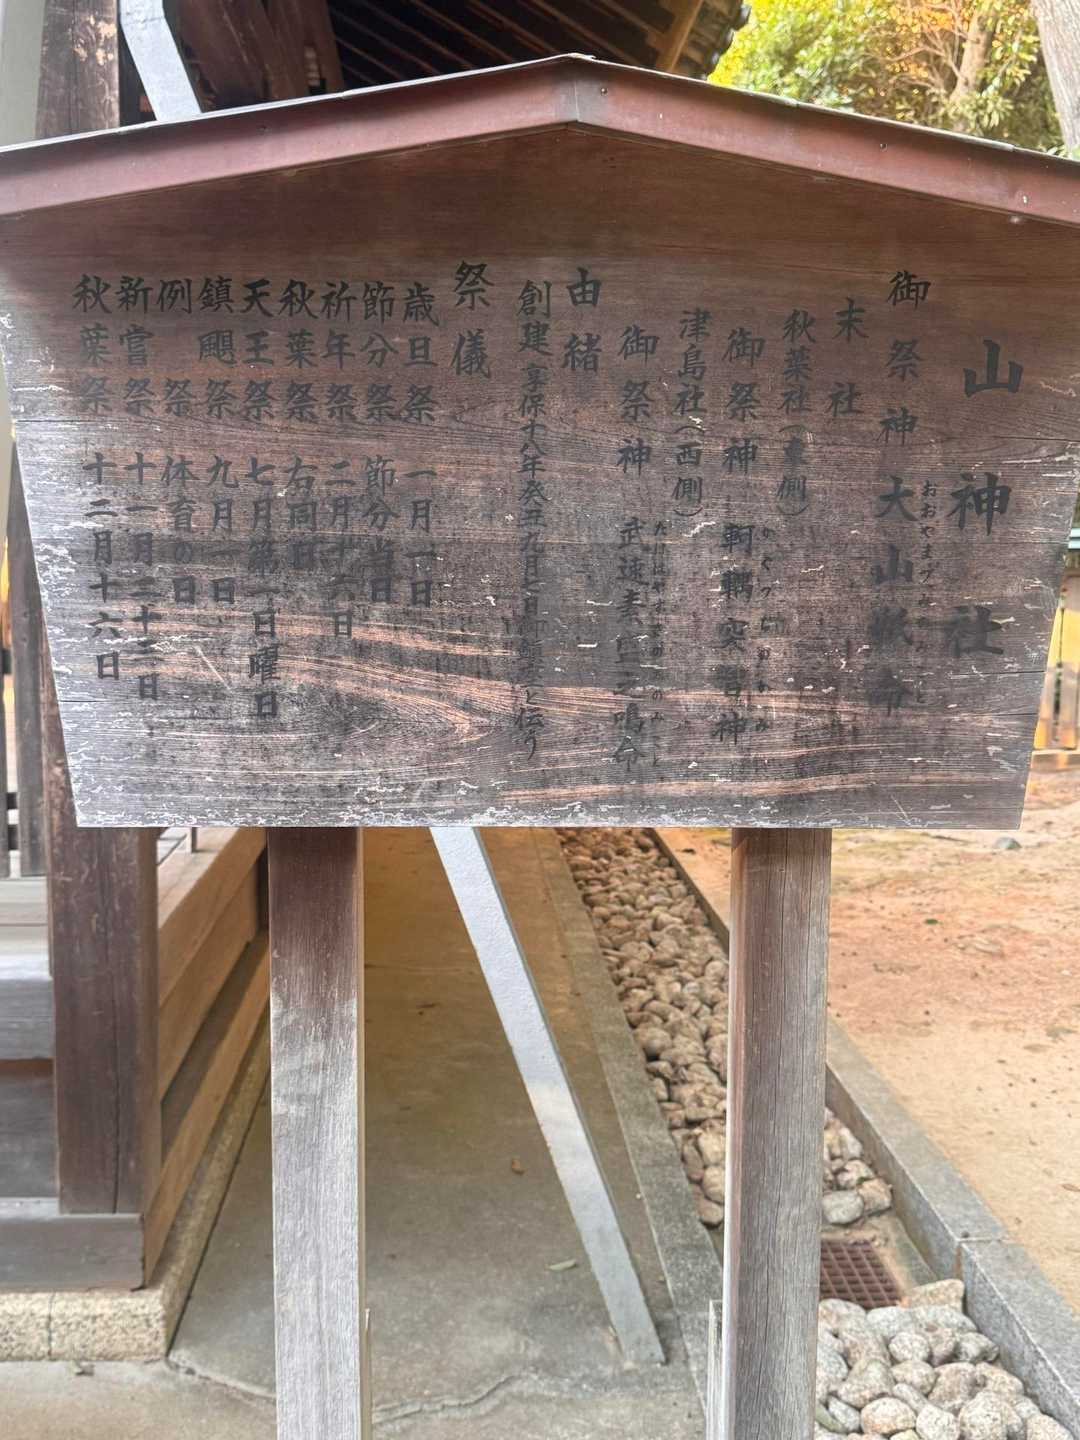 山神社
御祭神 大山祇命
おおやまづみのみこと
末社
秋葉社(東側)
御祭神 軻遇突智神
かぐつちのかみ
津島社(西側)
御祭神 武速素戔嗚命
たけはやすさのおのみこと
由緒
創建 享保十八年癸丑九月七日御鎮座と伝う
祭儀
歳旦祭 一月一日
節分祭 節分当日
祈年祭 二月十六日
秋葉祭 右同日
天王祭 七月第一日曜日
鎮颶祭 九月一日
例祭 体育の日
新嘗祭 十一月二十三日
秋葉祭 十二月十六日